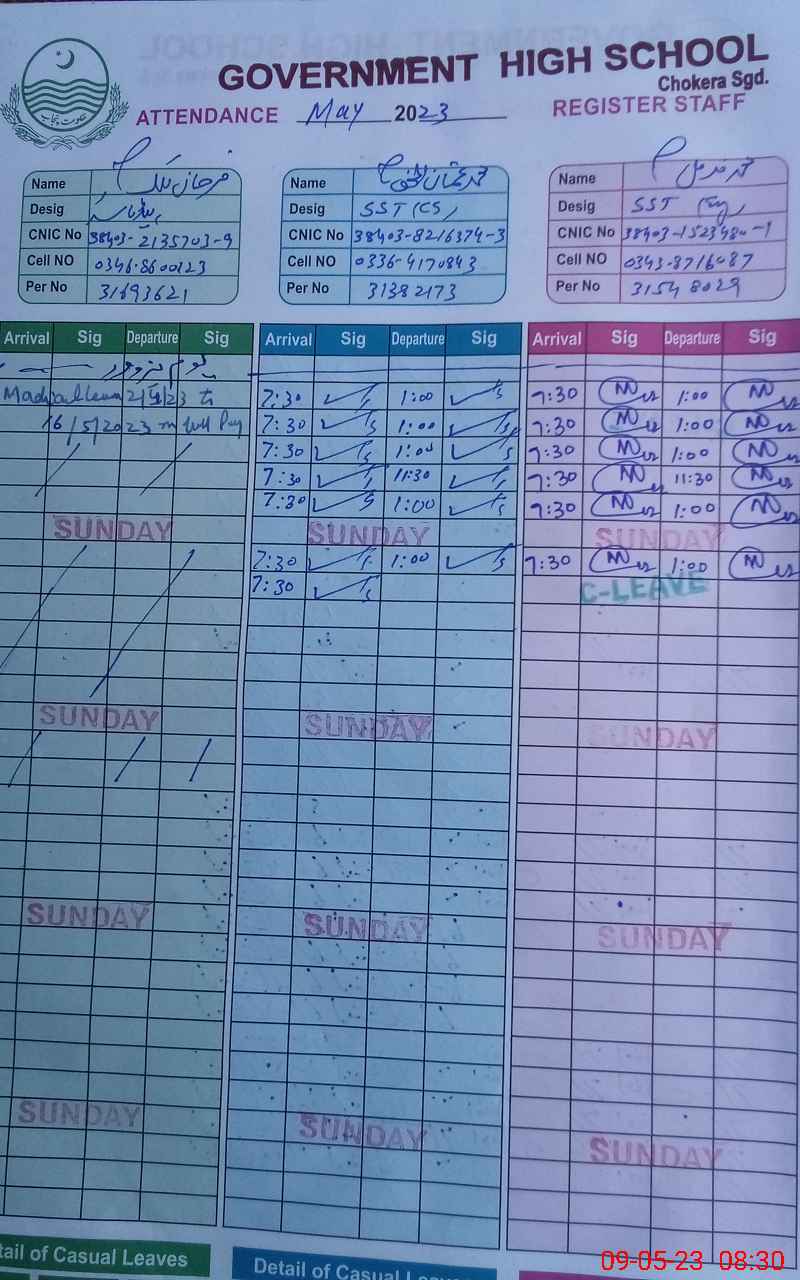 GOVERNMENT HIGH SCHOOL
Chokera Sgd.
ATTENDANCE May 2023 REGISTER STAFF
Name فرحان ملک
Desig
CNIC No 38403-2135703-9
Cell NO 0346-8600123
Per No 31693621
Name محمد عثمان
Desig SST (CS)
CNIC No 38403-8216374-3
Cell NO 0336-4170843
Per No 31382173
Name محمد
Desig SST
CNIC No 38403-1523480-1
Cell NO 0343-8716087
Per No 31548029
Arrival Sig Departure Sig Arrival Sig Departure Sig Arrival Sig Departure Sig
2/5/23 to 7:30 1:00 7:30 1:00
16/5/2023 on full Pay 7:30 1:00 7:30 1:00
7:30 1:00 7:30 1:00
7:30 11:30 7:30 11:30
7:30 1:00 7:30 1:00
SUNDAY SUNDAY SUNDAY
7:30 1:00 7:30 1:00
7:30 C-LEAVE
SUNDAY SUNDAY SUNDAY
SUNDAY SUNDAY SUNDAY
SUNDAY SUNDAY SUNDAY
tail of Casual Leaves Detail of Casual
09-05-23 08:30